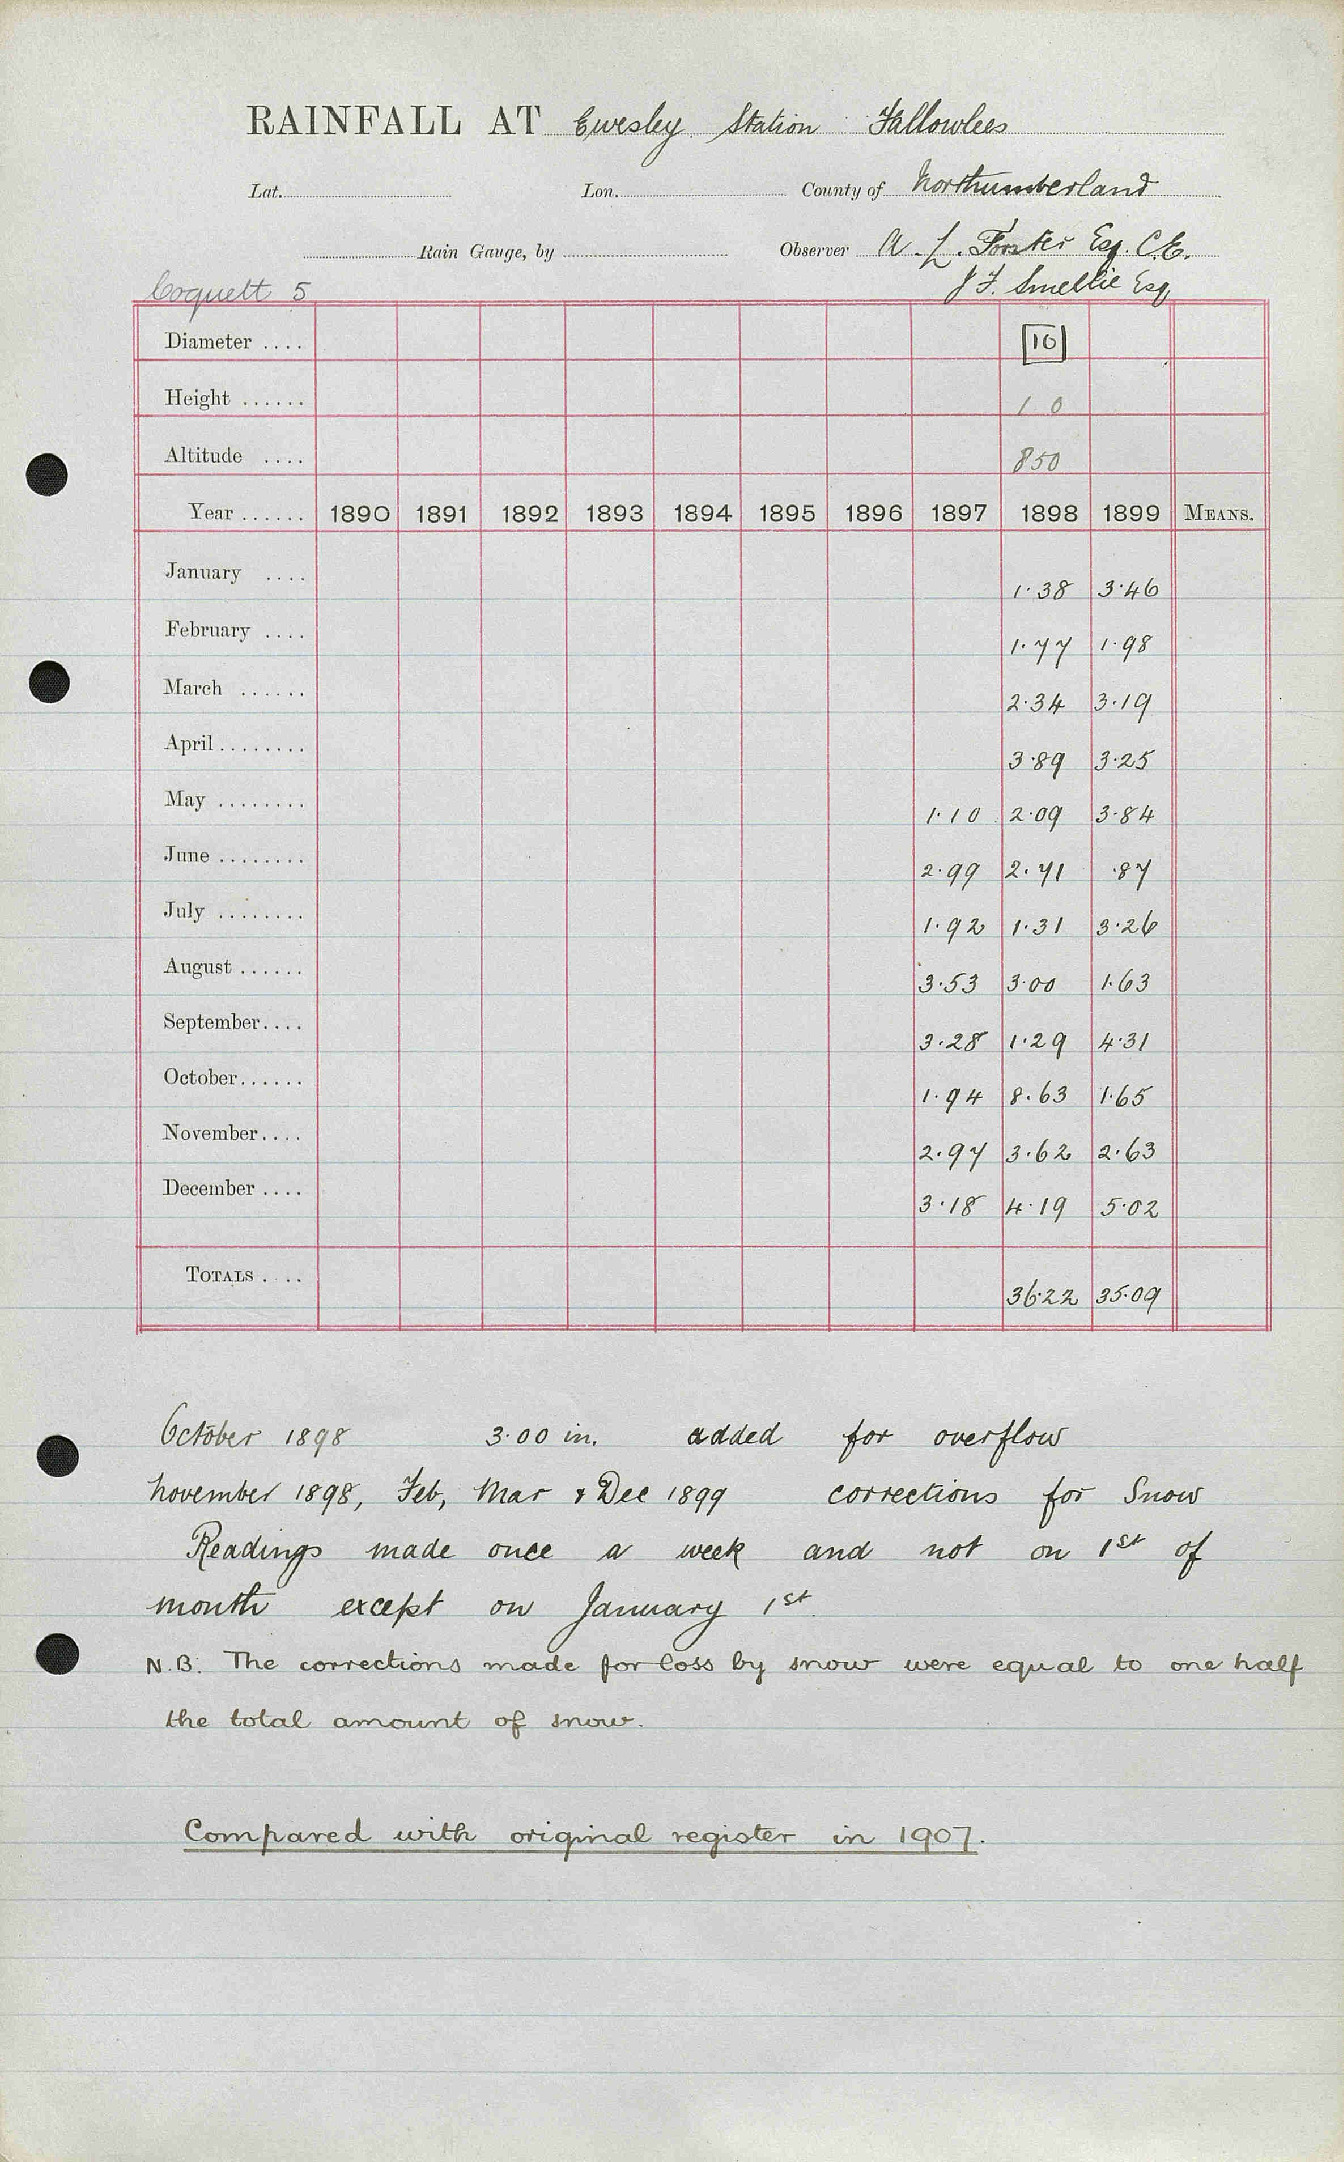 RAINFALL AT Ewesley Station Fallowlees
Lat. Lon. County of Northumberland
Rain Gauge, by Observer A. L. Forster Esq. C.E.
J F. Smellie Esq
Coquett 5
Diameter .... 10
Height ...... 1 0
Altitude .... 850
Year ...... 1890 1891 1892 1893 1894 1895 1896 1897 1898 1899 MEANS.
January .... 1.38 3.46
February .... 1.77 1.98
March ...... 2.34 3.19
April ........ 3.89 3.25
May ........ 1.10 2.09 3.84
June ........ 2.99 2.71 .87
July ........ 1.92 1.31 3.26
August ...... 3.53 3.00 1.63
September.... 3.28 1.29 4.31
October...... 1.94 8.63 1.65
November.... 2.97 3.62 2.63
December .... 3.18 4.19 5.02
TOTALS .... 36.22 35.09
October 1898 3.00 in. added for overflow
November 1898, Feb, Mar & Dec 1899 corrections for Snow
Readings made once a week and not on 1st of
month except on January 1st
N.B. The corrections made for loss by snow were equal to one half
the total amount of snow.
Compared with original register in 1907.